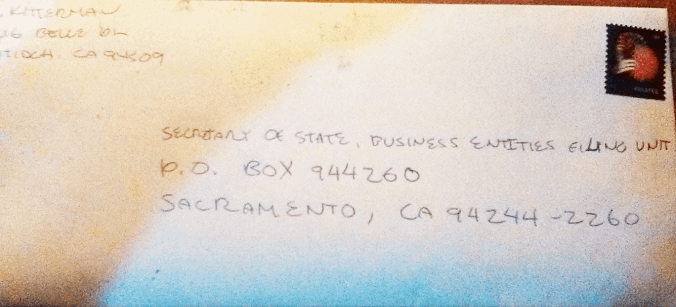 KITTERMAN
BELLE DR
CA 94509
SECRETARY OF STATE, BUSINESS ENTITIES FILING UNIT
P.O. BOX 944260
SACRAMENTO, CA 94244-2260